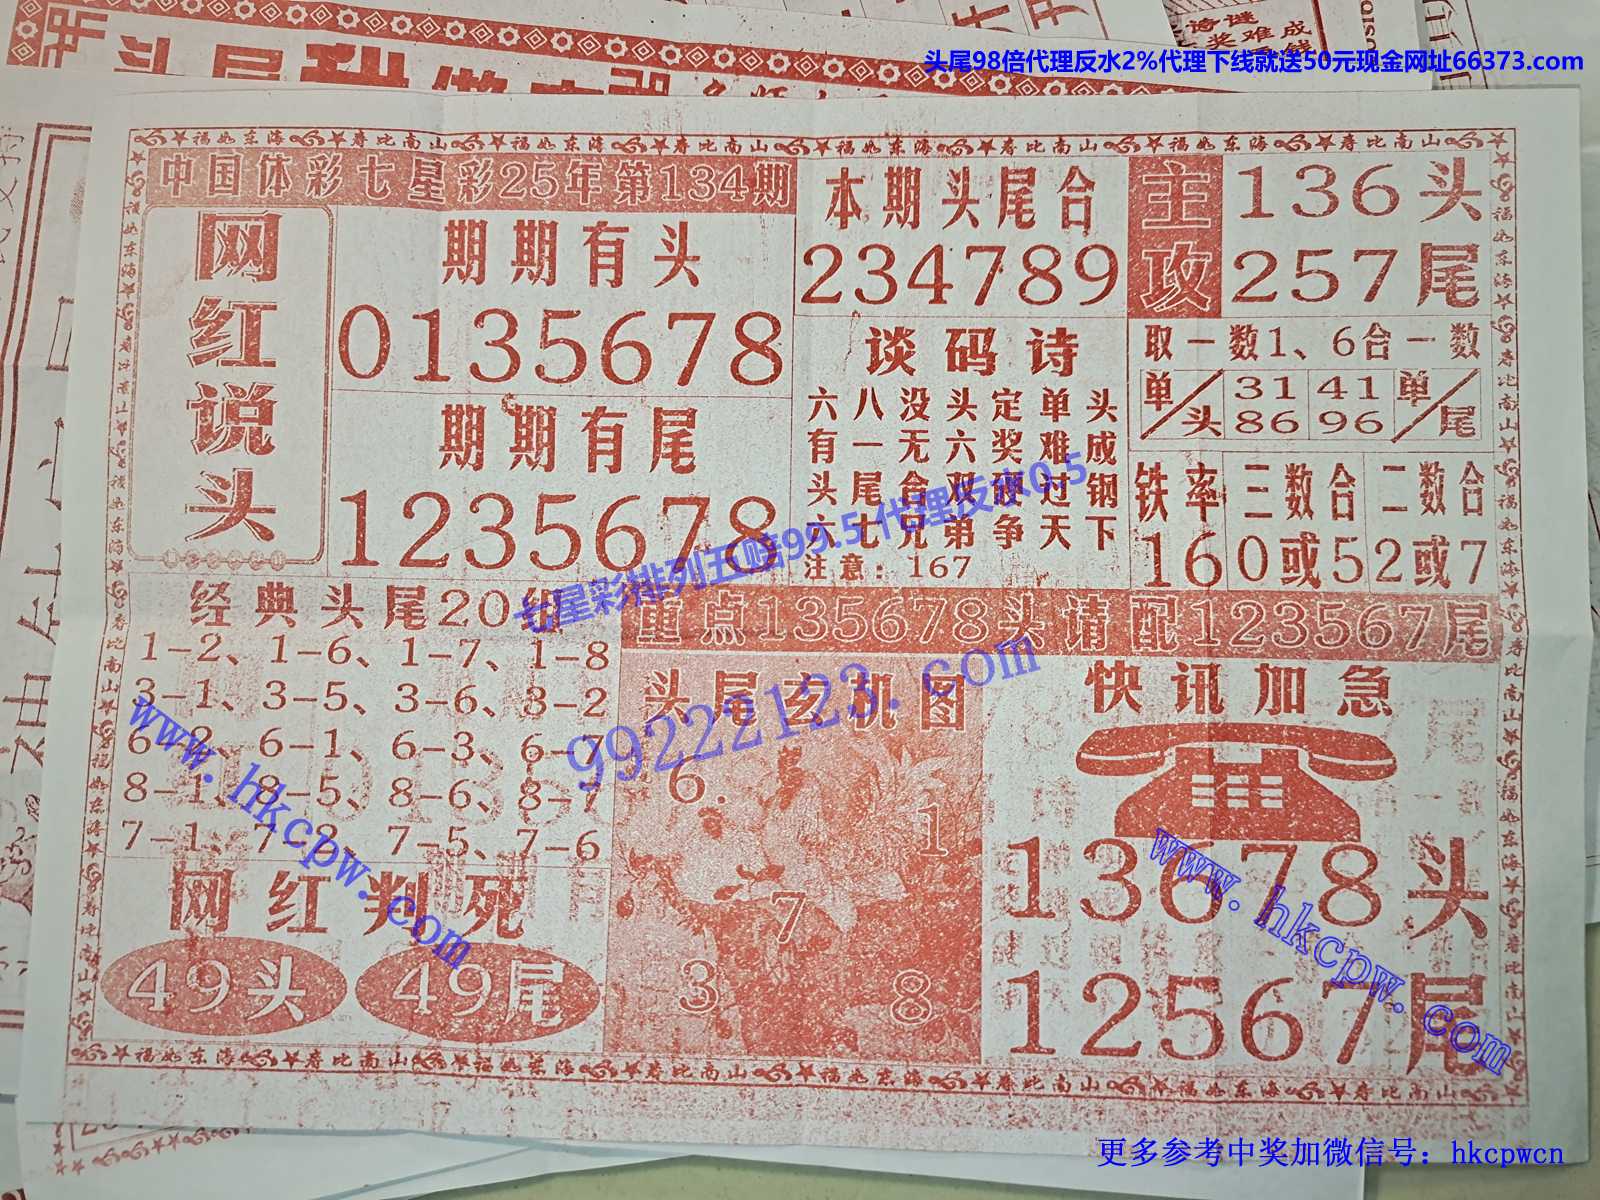 头尾98倍代理反水2%代理下线就送50元现金网址66373.com
诗谜
奖难成
福如东海 寿比南山 福如东海 寿比南山 福如东海 寿比南山 福如东海 寿比南山
中国体彩七星彩25年第134期
网红说头
期期有头
0135678
期期有尾
1235678
本期头尾合
234789
主攻
136头
257尾
谈码诗
六八没头定单头
有一无六奖难成
头尾合双硬过钢
六七兄弟争天下
注意:167
取一数1、6合一数
单/头 31 41 单/尾
86 96
铁率 三数合 二数合
160或52或7
经典头尾20组
1-2、1-6、1-7、1-8
3-1、3-5、3-6、3-2
6-2、6-1、6-3、6-7
8-1、8-5、8-6、8-7
7-1、7-2、7-5、7-6
重点135678头请配123567尾
七星彩排列五赔99.5代理反水0.5
99222123.com
头尾玄机图
6.
1
7
3
8
快讯加急
13678头
12567尾
网红判死
49头
49尾
www.hkcpw.com
www.hkcpw.com
福如东海 寿比南山 福如东海 寿比南山 福如东海 寿比南山 福如东海 寿比南山
更多参考中奖加微信号：hkcpwcn